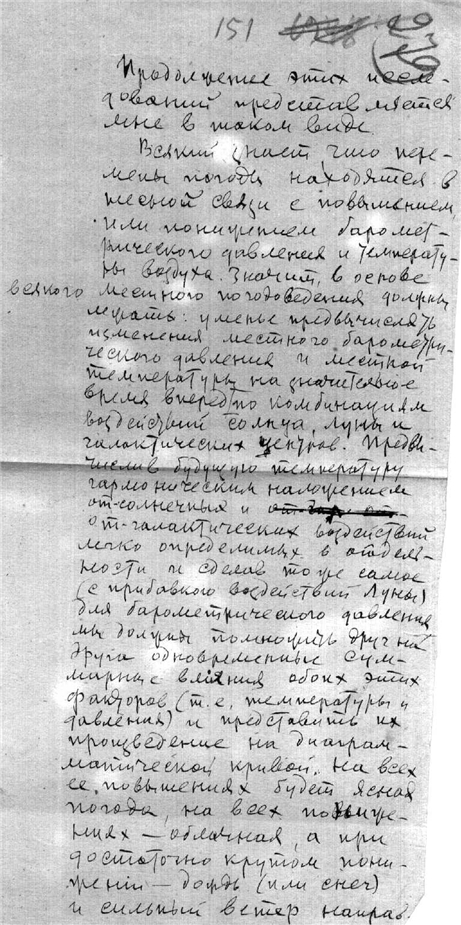 151
Продолжение этих иссле-
дований представляется
мне в таком виде.
Всякий знает, что пере-
мены погоды находятся в
тесной связи с повышением
или понижением баромет-
рического давления и температу-
ры воздуха. Значит, в основе
всякого местного погодоведения должны
лежать: уменье предвычислять
изменения местного барометри-
ческого давления и местной
температуры на значительное
время вперед по комбинациям
воздействий солнца, луны и
галактических центров. Предвы-
числив будущую температуру
гармоническим наложением
от-солнечных и
от-галактических воздействий
легко определимых в отдель-
ности и сделав тоже самое
(с прибавкою воздействий Луны)
для барометрического давления
мы должны помножить друг на
друга одновременные сум-
марные влияния обоих этих
факторов (т.е. температуры и
давления) и представить их
произведение на диаграм-
матической кривой. На всех
ее повышениях будет ясная
погода, на всех пониже-
ниях — облачная, а при
достаточно крутом пони-
жении — дождь (или снег)
и сильный ветер направ.